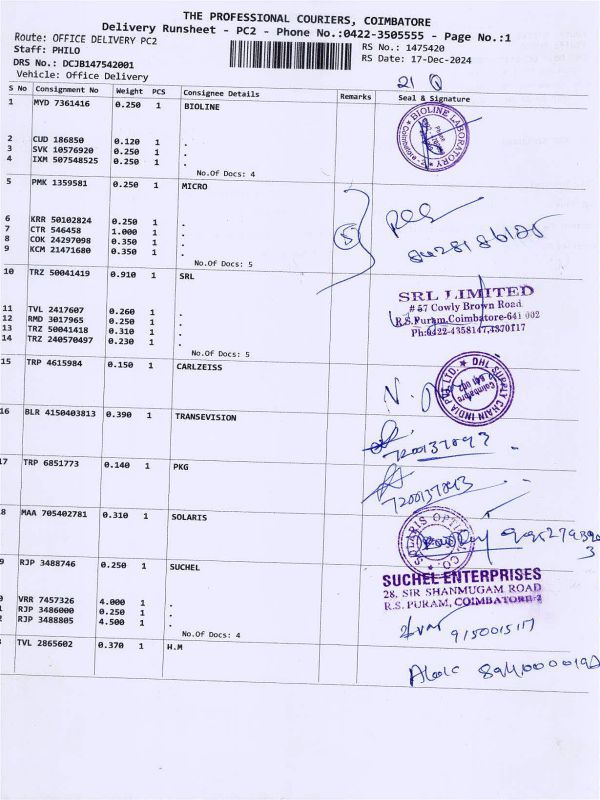 THE PROFESSIONAL COURIERS, COIMBATORE
Delivery Runsheet - PC2 - Phone No.:0422-3505555 - Page No.:1
Route: OFFICE DELIVERY PC2
RS No.: 1475420
Staff: PHILO
RS Date: 17-Dec-2024
DRS No.: DCJB147542001
Vehicle: Office Delivery
21
S No Consignment No Weight PCS Consignee Details Remarks Seal & Signature
1 MYD 7361416 0.250 1 BIOLINE
BIOLINE LABORATORY
2 CUD 186850 0.120 1 .
3 SVK 10570920 0.250 1 .
4 IXM 507548525 0.250 1 .
No.Of Docs: 4
5 PMK 1359581 0.250 1 MICRO
6 KRR 50102824 0.250 1 .
7 CTR 546458 1.000 1 .
8 COK 24297098 0.350 1 .
9 KCM 21471680 0.350 1 .
5
No.Of Docs: 5
10 TRZ 50041419 0.910 1 SRL
SRL LIMITED
# 57 Cowly Brown Road
R.S.Puram,Coimbatore-641 002
Ph:0422-4358147,4370117
11 TVL 2417607 0.260 1 .
12 RMD 3017965 0.250 1 .
13 TRZ 50041418 0.310 1 .
14 TRZ 240570497 0.230 1 .
No.Of Docs: 5
15 TRP 4615984 0.150 1 CARLZEISS
DHL SUPPLY CHAIN INDIA PVT. LTD.
Coimbatore
16 BLR 4150403813 0.390 1 TRANSEVISION
7200137893
17 TRP 6851773 0.140 1 PKG
7200137893
8 MAA 705402781 0.310 1 SOLARIS
SOLARIS OPTICAL CO.
9 RJP 3488746 0.250 1 SUCHEL
SUCHEL ENTERPRISES
28, SIR SHANMUGAM ROAD
R.S. PURAM, COIMBATORE-2
VRR 7457326 4.000 1 .
RJP 3486000 0.250 1 .
RJP 3488805 4.500 1 .
No.Of Docs: 4
9150015117
TVL 2865602 0.370 1 H.M